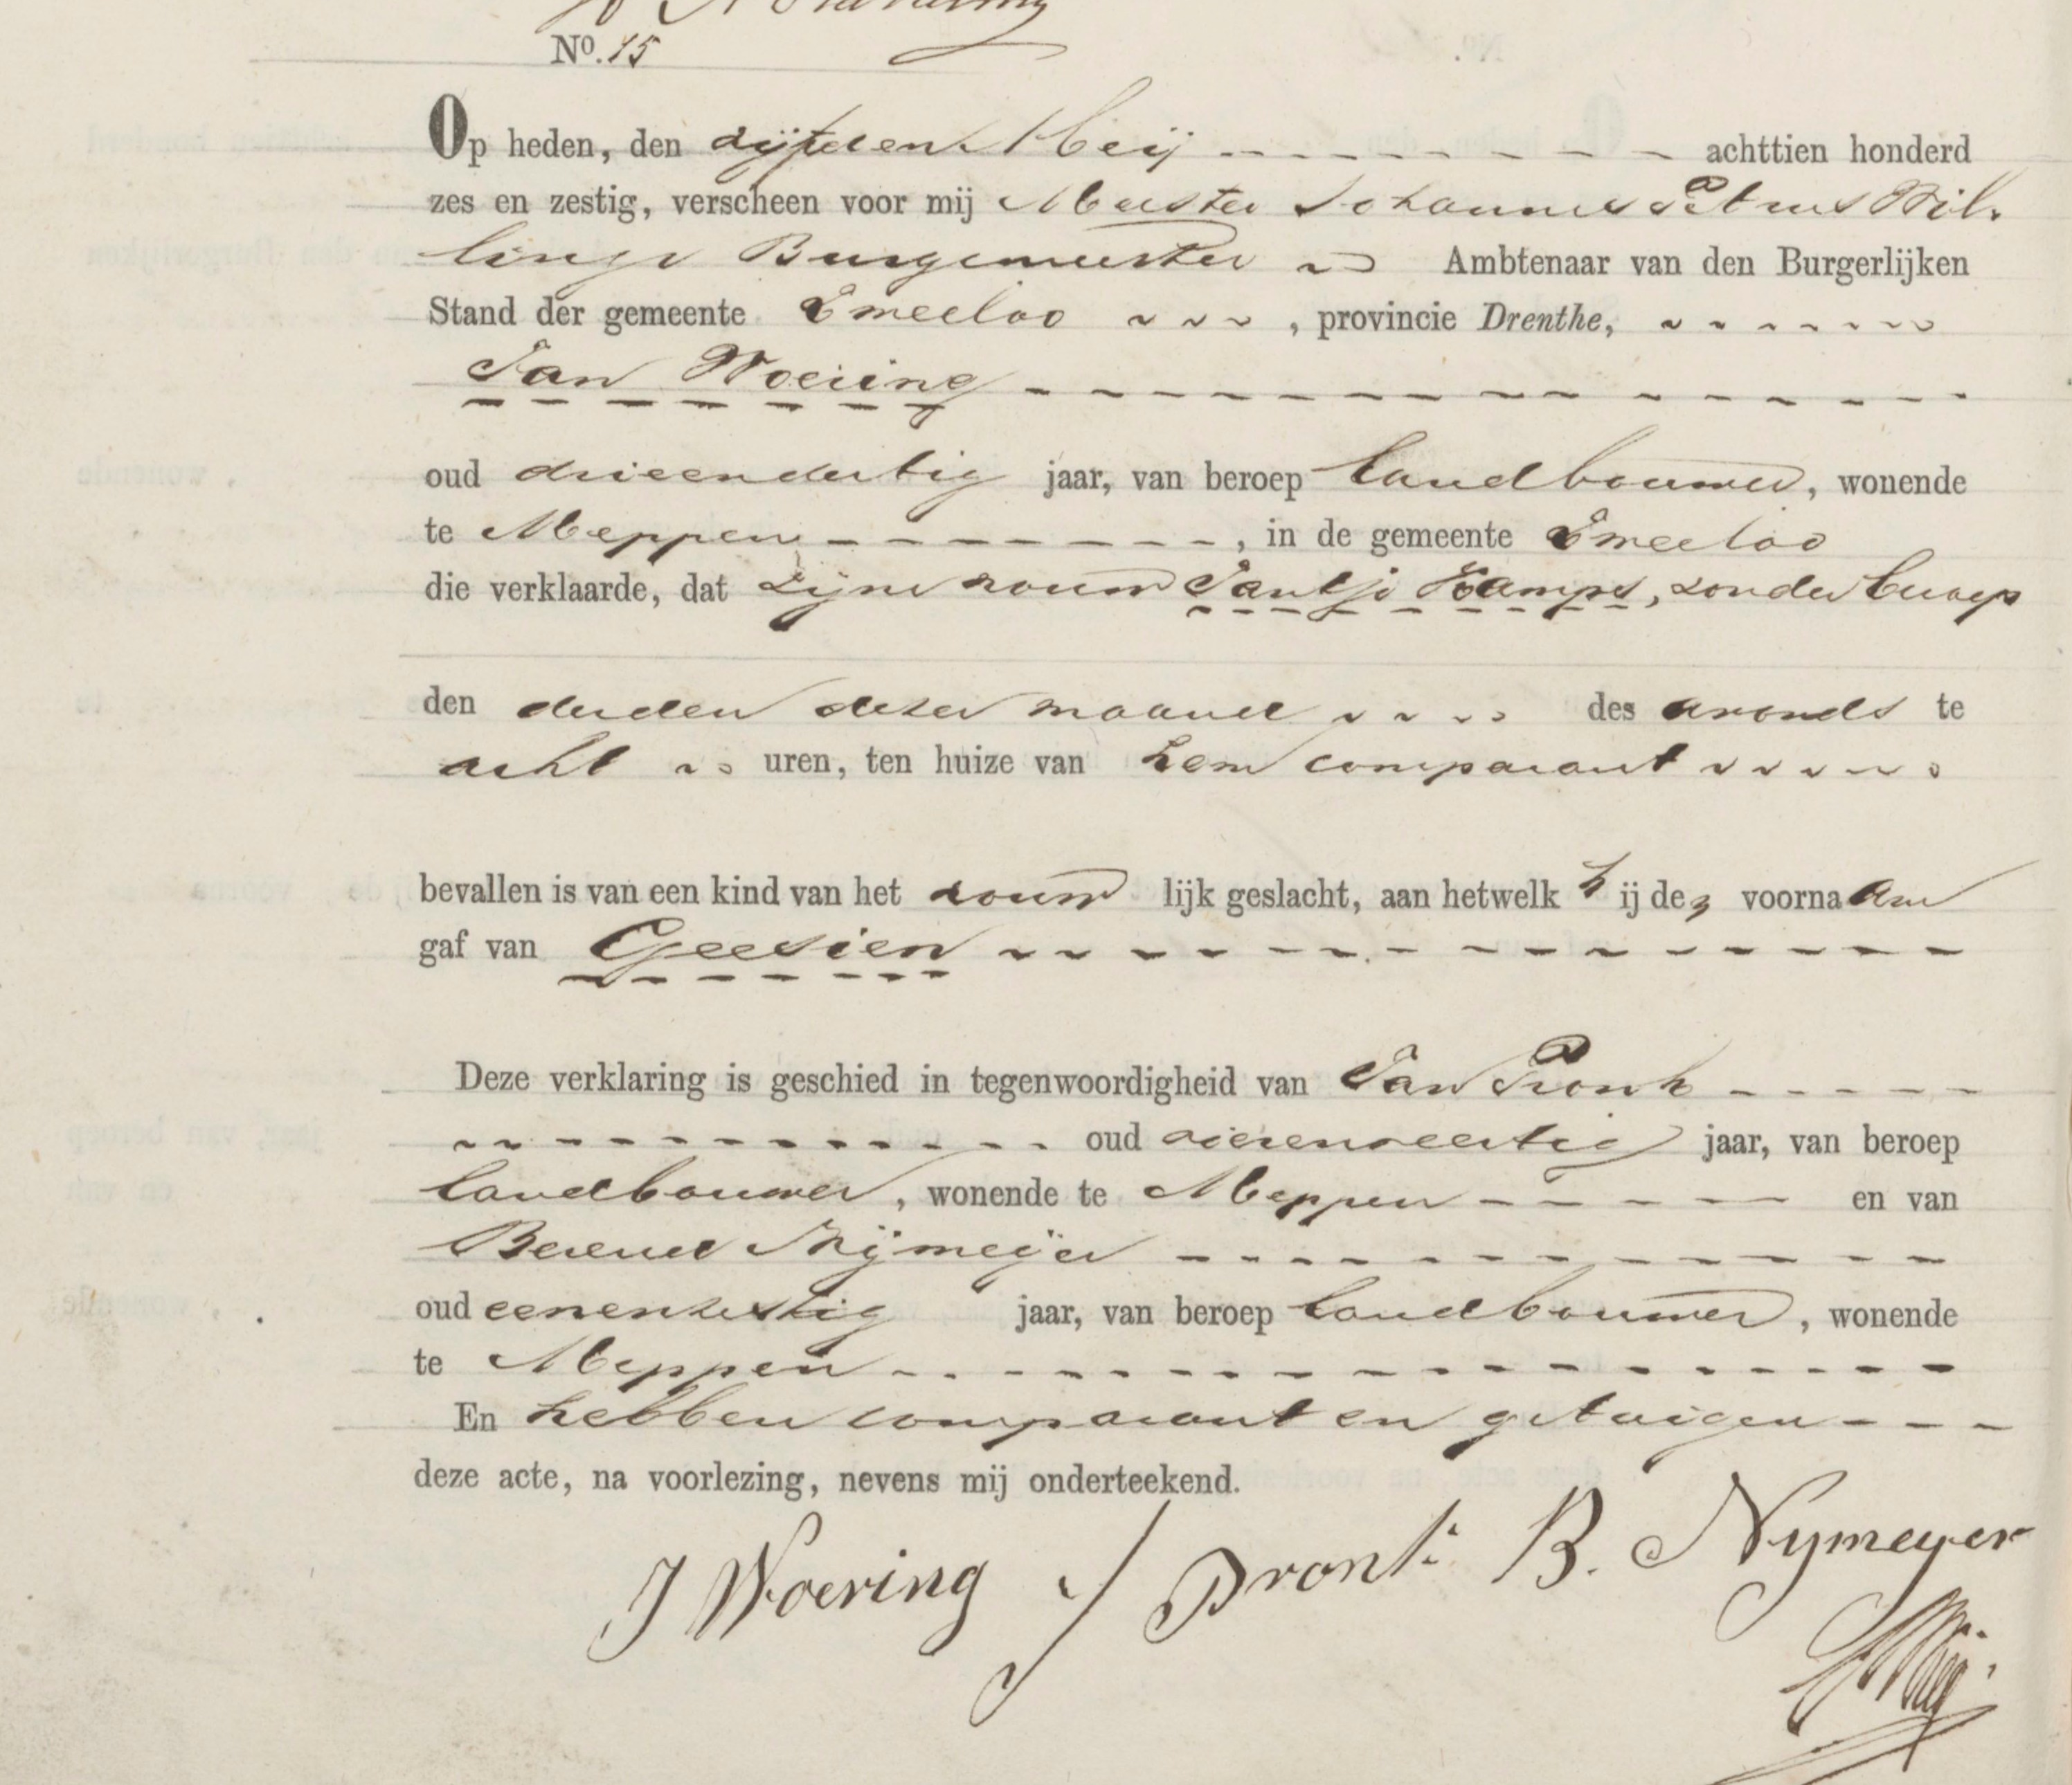 No. 15
Op heden, den vijfden Meij achttien honderd
zes en zestig, verscheen voor mij Meester Johannes Petrus Wil-
linge Burgemeester Ambtenaar van den Burgerlijken
Stand der gemeente Zweeloo, provincie Drenthe,
Jan Woering
oud drieendertig jaar, van beroep landbouwer, wonende
te Meppen, in de gemeente Zweeloo
die verklaarde, dat zijne vrouw Jantje Kamps, zonder beroep
den derden dezer maand des avonds te
acht uren, ten huize van hem comparant
bevallen is van een kind van het vrouw lijk geslacht, aan hetwelk h ij de voorna am
gaf van Geesien
Deze verklaring is geschied in tegenwoordigheid van Jan Pronk
oud vierenveertig jaar, van beroep
landbouwer, wonende te Meppen en van
Berend Nijmeijer
oud eenenzestig jaar, van beroep landbouwer, wonende
te Meppen
En hebben comparant en getuigen
deze acte, na voorlezing, nevens mij onderteekend.
J Woering J Pronk B. Nymeyer